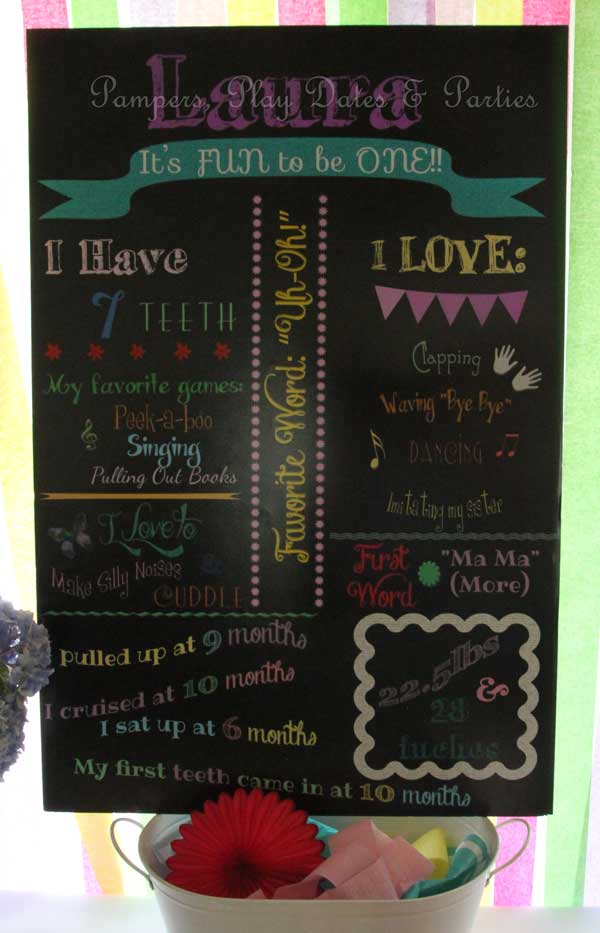 Laura
Pampers, Play Dates & Parties
It's FUN to be ONE!!
I Have
7 TEETH
My favorite games:
Peek-a-boo
Singing
Pulling Out Books
I Love to
Make Silly Noises
& CUDDLE
Favorite Word: "Uh-Oh!"
I LOVE:
Clapping
Waving "Bye Bye"
DANCING
Imitating my sister
First Word
"Ma Ma"
(More)
pulled up at 9 months
I cruised at 10 months
I sat up at 6 months
My first teeth came in at 10 months
22.5lbs
&
28
inches